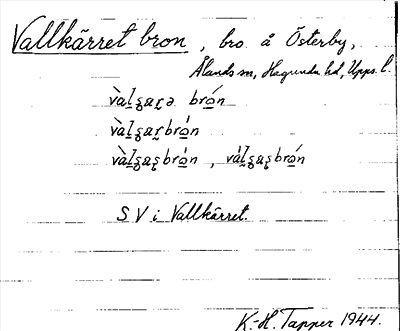 Vallkärret bron, bro å Österby,
Ålands sn, Hagunda hd, Upps. l.
vàlʂaṛə brón
vàlʂaṛbrón
vàlʂaʂbrón, válʂaʂbrón
S V i Vallkärret.
K.-H. Tapper 1944.